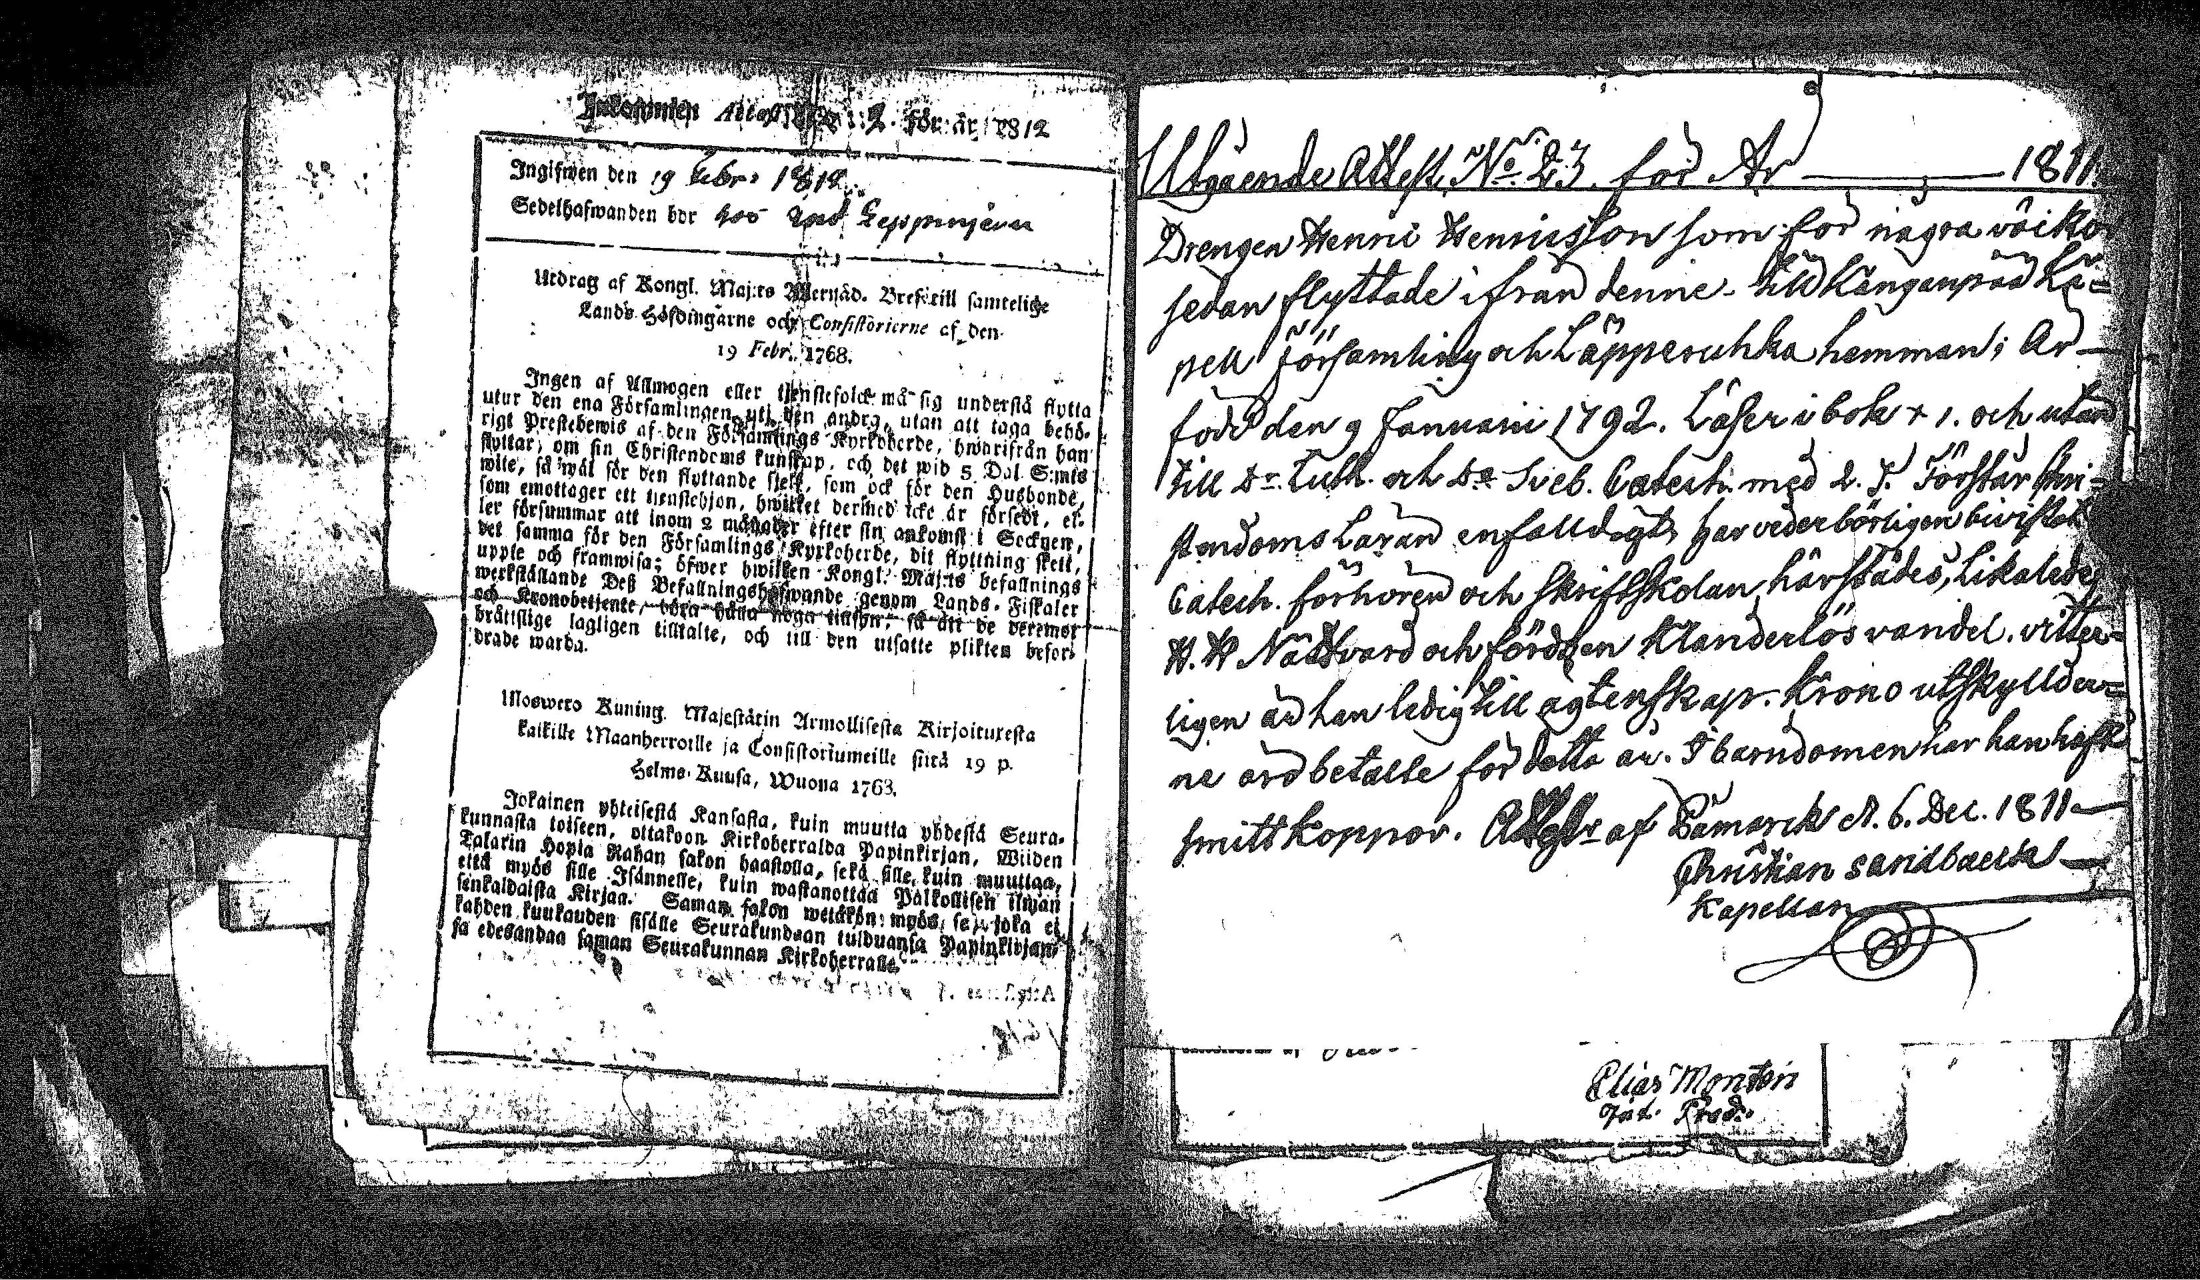 Inkommen Attest N:o 2. för år 1812
Ingifwen den 19 Febr: 1812
Sedelhafwanden bor hos Leppinjerw
Utdrag af Kongl. Maj:ts Allernåd. Bref till samtelige
Lands-Höfdingarne och Consistorierne af den
19 Febr. 1768.
Ingen af Allmogen eller tjenstefolck må sig understå flytta
utur den ena Församlingen uti den andra, utan att taga behö-
rigt Prestebewis af den Församlings Kyrkoherde, hwarifrån han
flyttar, om sin Christendoms kunskap, och det wid 5 Dal. S:mts
wite, så wäl för den flyttande sjelf, som ock för den Husbonde,
som emottager ett tjenstehjon, hwilket dermed icke är försedt, el-
ler försummar att inom 2 månader efter sin ankomst i Socknen,
det samma för den Församlings Kyrkoherde, dit flyttning skett,
uppte och framwisa; öfwer hwilken Kongl. Maj:ts befallnings
werkställande Deß Befallningshafwande genom Lands-Fiskaler
och Kronobetjente, böra hålla noga tillsyn, så att de deremot
bråttslige lagligen tilltalte, och till den utsatte plikten befor-
drade warda.
Uloswero Kuning. Majestätin Armollisesta Kirjoituxesta
kaikille Maanherroille ja Consistoriumeille siitä 19 p.
Helme-Kuusa, Wuona 1763.
Jokainen yhteisestä Kansasta, kuin muutta yhdestä Seura-
kunnasta toiseen, ottakoon Kirkoherralda Papinkirjan, Wiiden
Talarin Hopia Rahan sakon haastolla, sekä sille, kuin muuttaa,
että myös sille Isännelle, kuin wastanottaa Palkollisen ilman
senkaldaista Kirjaa. Saman sakon wetäkön myös, se joka ei
kahden kuukauden sisälle Seurakundaan tulduansa Papinkirjan-
sa edesandaa saman Seurakunnan Kirkoherralle.
Utgående Attest N:o 23. för År — 1811.
Drengen Henric Henricsson som för några veckor
sedan flyttade ifrån denne till Kånganpää Ka=
pell församling och Läpperuhka hemman; Är
född den 9 Januarii 1792. Läser i bok + 1. och utan
till Dr. Luth. och Dr Sveb. Catech. med 2. J. Förstår Chri=
stendoms Läran enfalldigt, har vederbörligen bivistat
Catech. förhören och Skriftskolan härstädes, likaledes
H. H Nattvard och fördt en klanderlös vandel. vitter=
ligen är han ledig till ägtenskap. Krono utskyllder=
ne äro betalte för detta år. I barndomen har han haft
smittkoppor. af Påmark d. 6. Dec. 1811
Christian Sandbaeck
Kapellan
Elias Monten